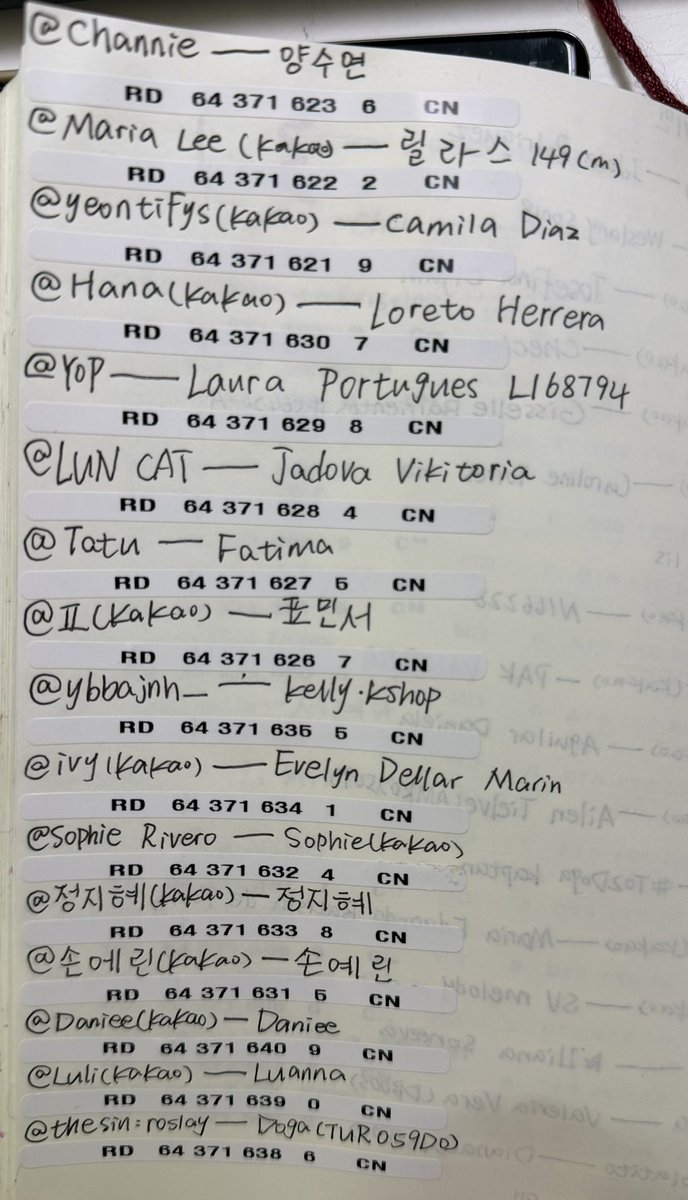 @Channie — 양수연
RD 64 371 623 6 CN
@Maria Lee (Kakao) — 릴라스 149(m)
RD 64 371 622 2 CN
@yeontifys(Kakao) — Camila Diaz
RD 64 371 621 9 CN
@Hana(Kakao) — Loreto Herrera
RD 64 371 630 7 CN
@YOP — Laura Portugues L168794
RD 64 371 629 8 CN
@LUN CAT — Jadova Vikitoria
RD 64 371 628 4 CN
@Tatu — Fatima
RD 64 371 627 5 CN
@표(Kakao) — 표민서
RD 64 371 626 7 CN
@ybbajnh_ — kelly.kshop
RD 64 371 635 5 CN
@ivy(Kakao) — Evelyn Dellar Marin
RD 64 371 634 1 CN
@Sophie Rivero — Sophie(Kakao)
RD 64 371 632 4 CN
@정지혜(Kakao) — 정지혜
RD 64 371 633 8 CN
@손에린(Kakao) — 손예린
RD 64 371 631 5 CN
@Daniee(Kakao) — Daniee
RD 64 371 640 9 CN
@Luli(Kakao) — Luanna
RD 64 371 639 0 CN
@thesin:roslay — Doga(TUR059DO)
RD 64 371 638 6 CN